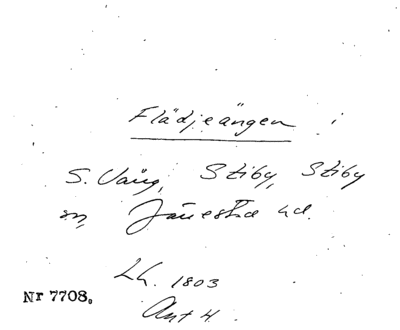 Flädjeängen
S. Vång, Stiby, Stiby
sn, Järrestad hd.
Lh. 1803
Akt 4.
Nr 7708.